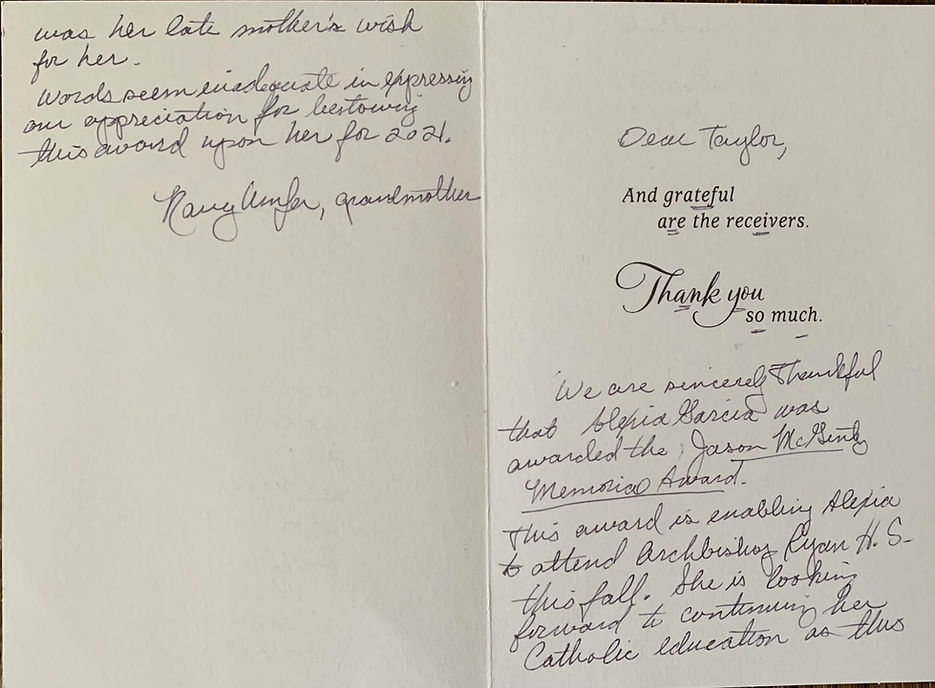 Dear Taylor,
And grateful
are the receivers.
Thank you
so much.
We are sincerely Thankful
that Alexia Garcia was
awarded the Jason McGinty
Memorial Award.
This award is enabling Alexia
to attend Archbishop Ryan H.S.
this fall. She is looking
forward to continuing her
Catholic education as this
was her late mother's wish
for her.
Words seem inadequate in expressing
our appreciation for bestowing
this award upon her for 2021.
grandmother